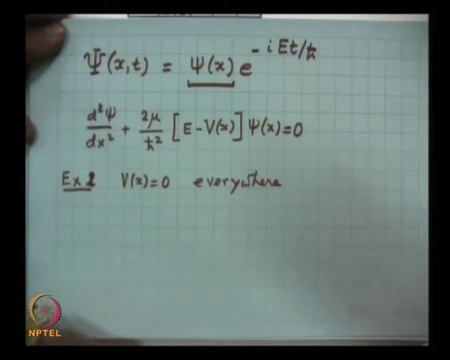 Ψ(x,t) = ψ(x) e^{-iEt/ħ}
d²ψ/dx² + 2μ/ħ² [E-V(x)] ψ(x)=0
Ex 1 V(x)=0 everywhere
NPTEL